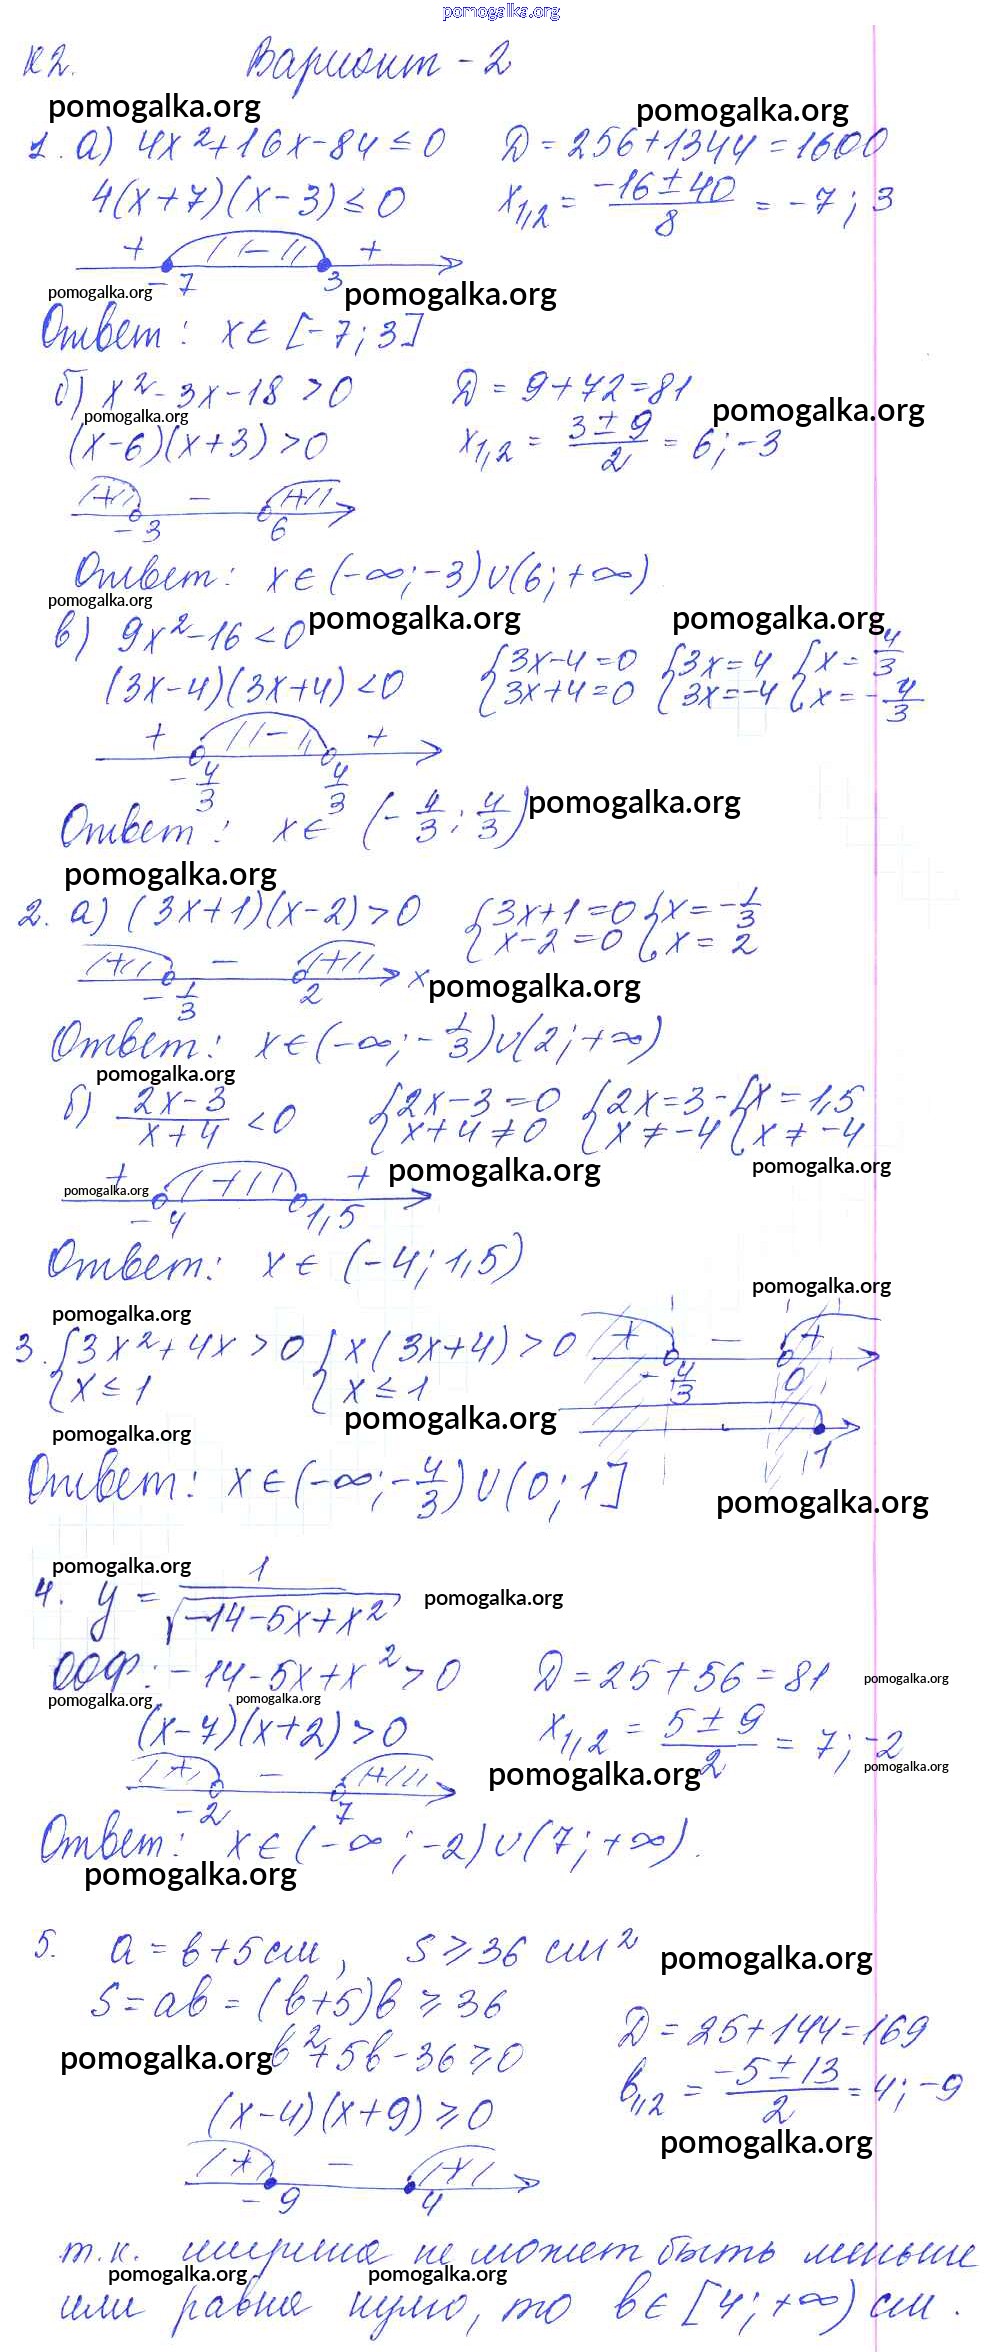 pomogalka.org
К2. Вариант - 2
pomogalka.org pomogalka.org
1. а) 4x²+16x-84 ≤ 0 D = 256+1344 = 1600
4(x+7)(x-3) ≤ 0 x₁,₂ = (-16 ± 40)/8 = -7; 3
+ - +
-7 3
pomogalka.org pomogalka.org
Ответ: x ∈ [-7; 3]
б) x²-3x-18 > 0 D = 9+72=81
pomogalka.org pomogalka.org
(x-6)(x+3) > 0 x₁,₂ = (3 ± 9)/2 = 6; -3
+ - +
-3 6
Ответ: x ∈ (-∞; -3) ∪ (6; +∞)
pomogalka.org pomogalka.org pomogalka.org
в) 9x²-16 < 0
(3x-4)(3x+4) < 0 {3x-4=0 {3x=4 {x=4/3
{3x+4=0 {3x=-4 {x=-4/3
+ - +
-4/3 4/3
Ответ: x ∈ (-4/3; 4/3) pomogalka.org
pomogalka.org
2. а) (3x+1)(x-2) > 0 {3x+1=0 {x=-1/3
{x-2=0 {x=2
+ - + x
-1/3 2 pomogalka.org
Ответ: x ∈ (-∞; -1/3) ∪ (2; +∞)
pomogalka.org
б) (2x-3)/(x+4) < 0 {2x-3=0 {2x=3 - {x=1,5
{x+4≠0 {x≠-4 {x≠-4
pomogalka.org pomogalka.org
+ + +
pomogalka.org
-4 1,5
Ответ: x ∈ (-4; 1,5)
pomogalka.org
pomogalka.org
3. {3x²+4x > 0 {x(3x+4) > 0 + - +
{x ≤ 1 {x ≤ 1 -4/3 0
pomogalka.org pomogalka.org 1
Ответ: x ∈ (-∞; -4/3) ∪ (0; 1]
pomogalka.org
pomogalka.org
4. y = 1/√(-14-5x+x²) pomogalka.org
ООФ: -14-5x+x² > 0 D = 25+56 = 81 pomogalka.org
pomogalka.org pomogalka.org
(x-7)(x+2) > 0 x₁,₂ = (5 ± 9)/2 = 7; -2
pomogalka.org pomogalka.org
+ - +
-2 7
Ответ: x ∈ (-∞; -2) ∪ (7; +∞).
pomogalka.org
5. a = b+5см, S ≥ 36 см²
pomogalka.org
S = ab = (b+5)b ≥ 36
D = 25+144=169
pomogalka.org b²+5b-36 ≥ 0
b₁,₂ = (-5 ± 13)/2 = 4; -9
(x-4)(x+9) ≥ 0
pomogalka.org
+ - +
-9 4
т.к. ширина не может быть меньше
pomogalka.org pomogalka.org
или равна нулю, то b ∈ [4; +∞) см.